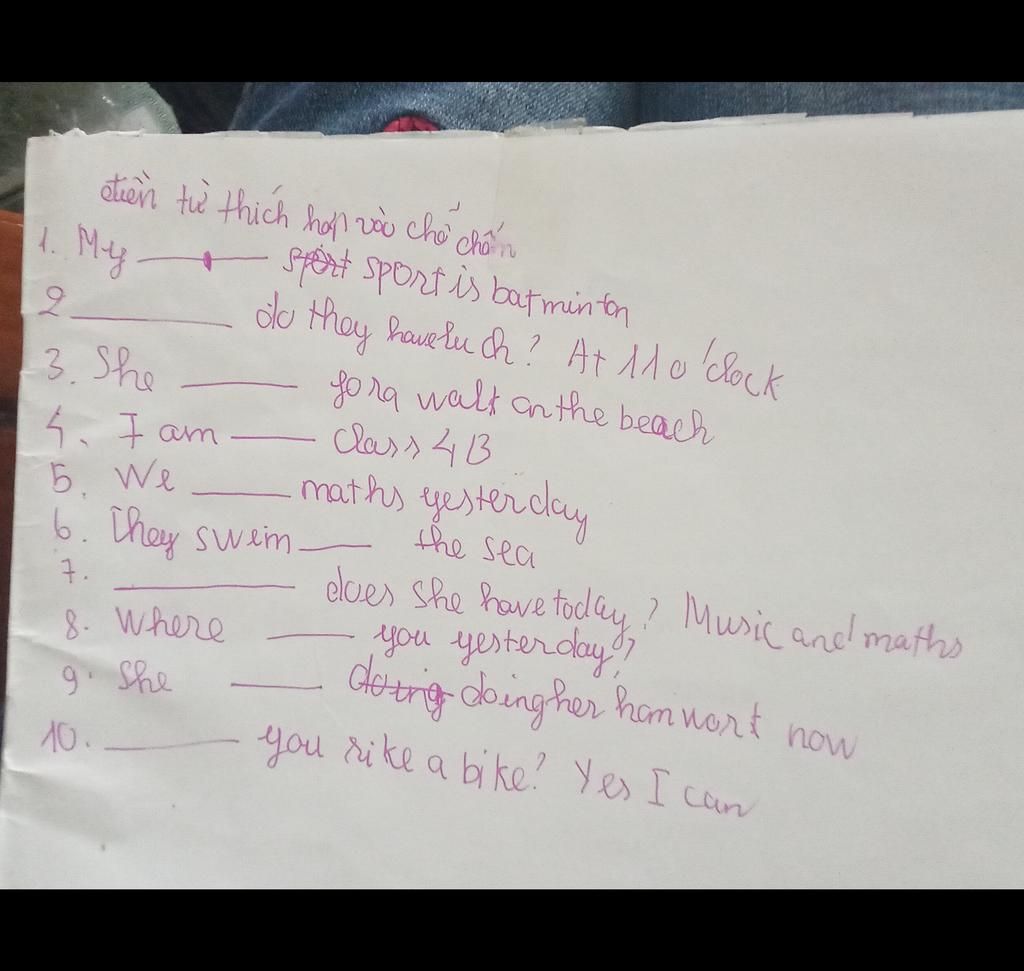 điền từ thích hợp vào chỗ chấn
1. My ______ sport is batminton
2 ______ do they have luch? At 11 o'clock
3. She ______ for a walk on the beach
4. I am ______ class 4B
5. We ______ maths yesterday
6. They swim ______ the sea
7. ______ does she have today? Music and maths
8. Where ______ you yesterday?
9. She ______ doing her homwork now
10. ______ you rike a bike? Yes I can